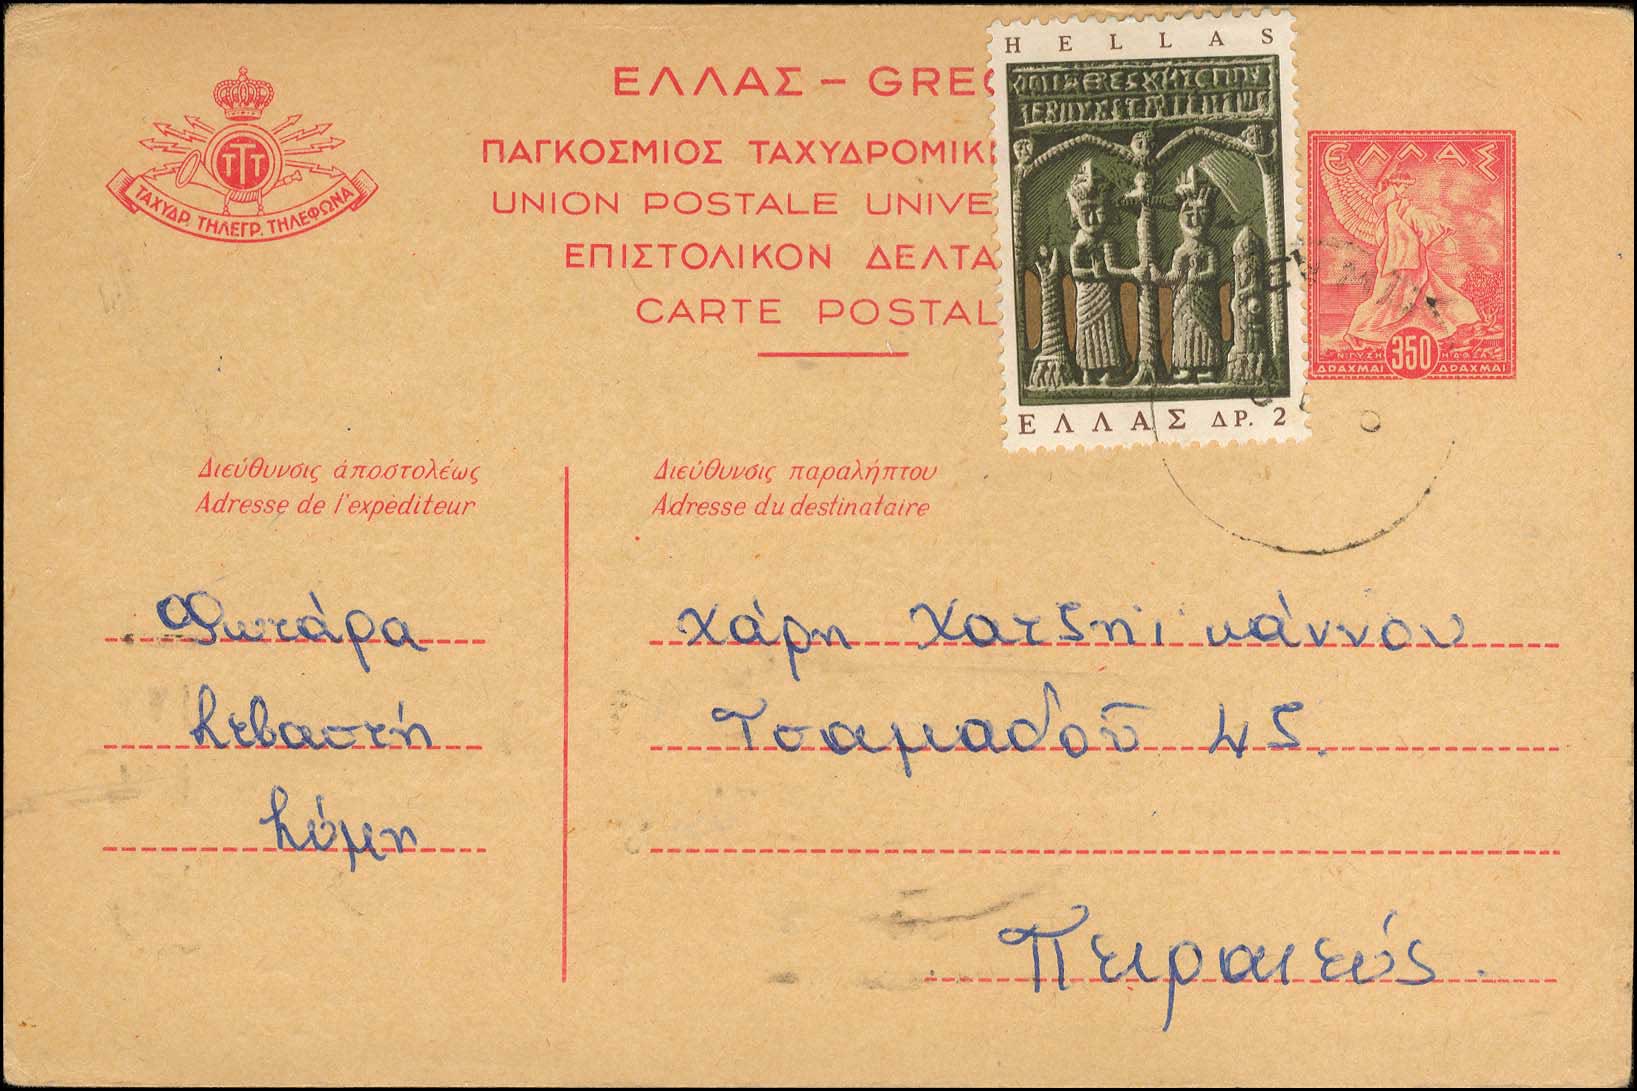 ΕΛΛΑΣ – GREC
ΠΑΓΚΟΣΜΙΟΣ ΤΑΧΥΔΡΟΜΙΚ
UNION POSTALE UNIVE
ΕΠΙΣΤΟΛΙΚΟΝ ΔΕΛΤΑ
CARTE POSTAL
ΤΤΤ
ΤΑΧΥΔΡ. ΤΗΛΕΓΡ. ΤΗΛΕΦΩΝΑ
HELLAS
ΕΛΛΑΣ ΔΡ. 2
ΕΛΛΑΣ
350
ΔΡΑΧΜΑΙ ΔΡΑΧΜΑΙ
Διεύθυνσις ἀποστολέως
Adresse de l'expéditeur
Φωτάρα
Σεβαστή
Κύμη
Διεύθυνσις παραλήπτου
Adresse du destinataire
Χάρη Χατζηϊωάννου
Τσαμαδοῦ 45.
Πειραιεύς.